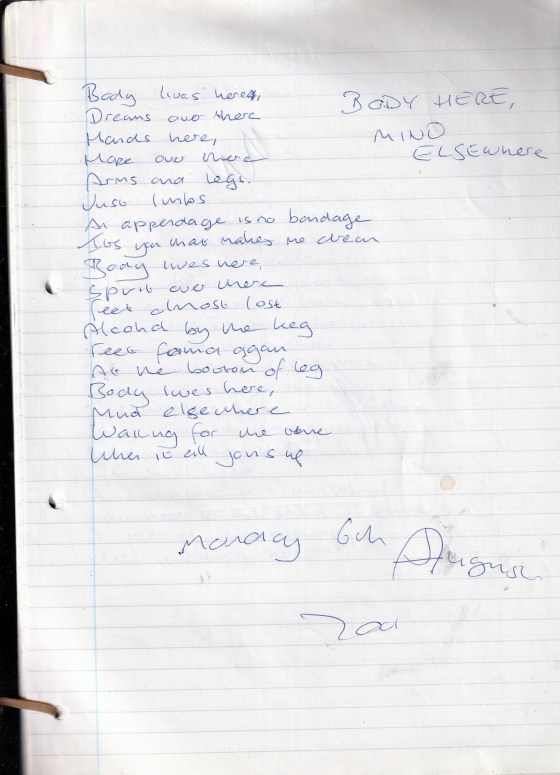 BODY HERE,
MIND
ELSEWHERE
Body lives here,
Dreams over there
Hands here,
Hope over there
Arms and legs.
Just limbs
An appendage is no bondage
Its you that makes me dream
Body lives here,
Spirit over there
Feet almost lost
Alcohol by the keg
Feet found again
At the bottom of leg
Body lives here,
Mind elsewhere
Waiting for the time
When it all joins up
Monday 6th August